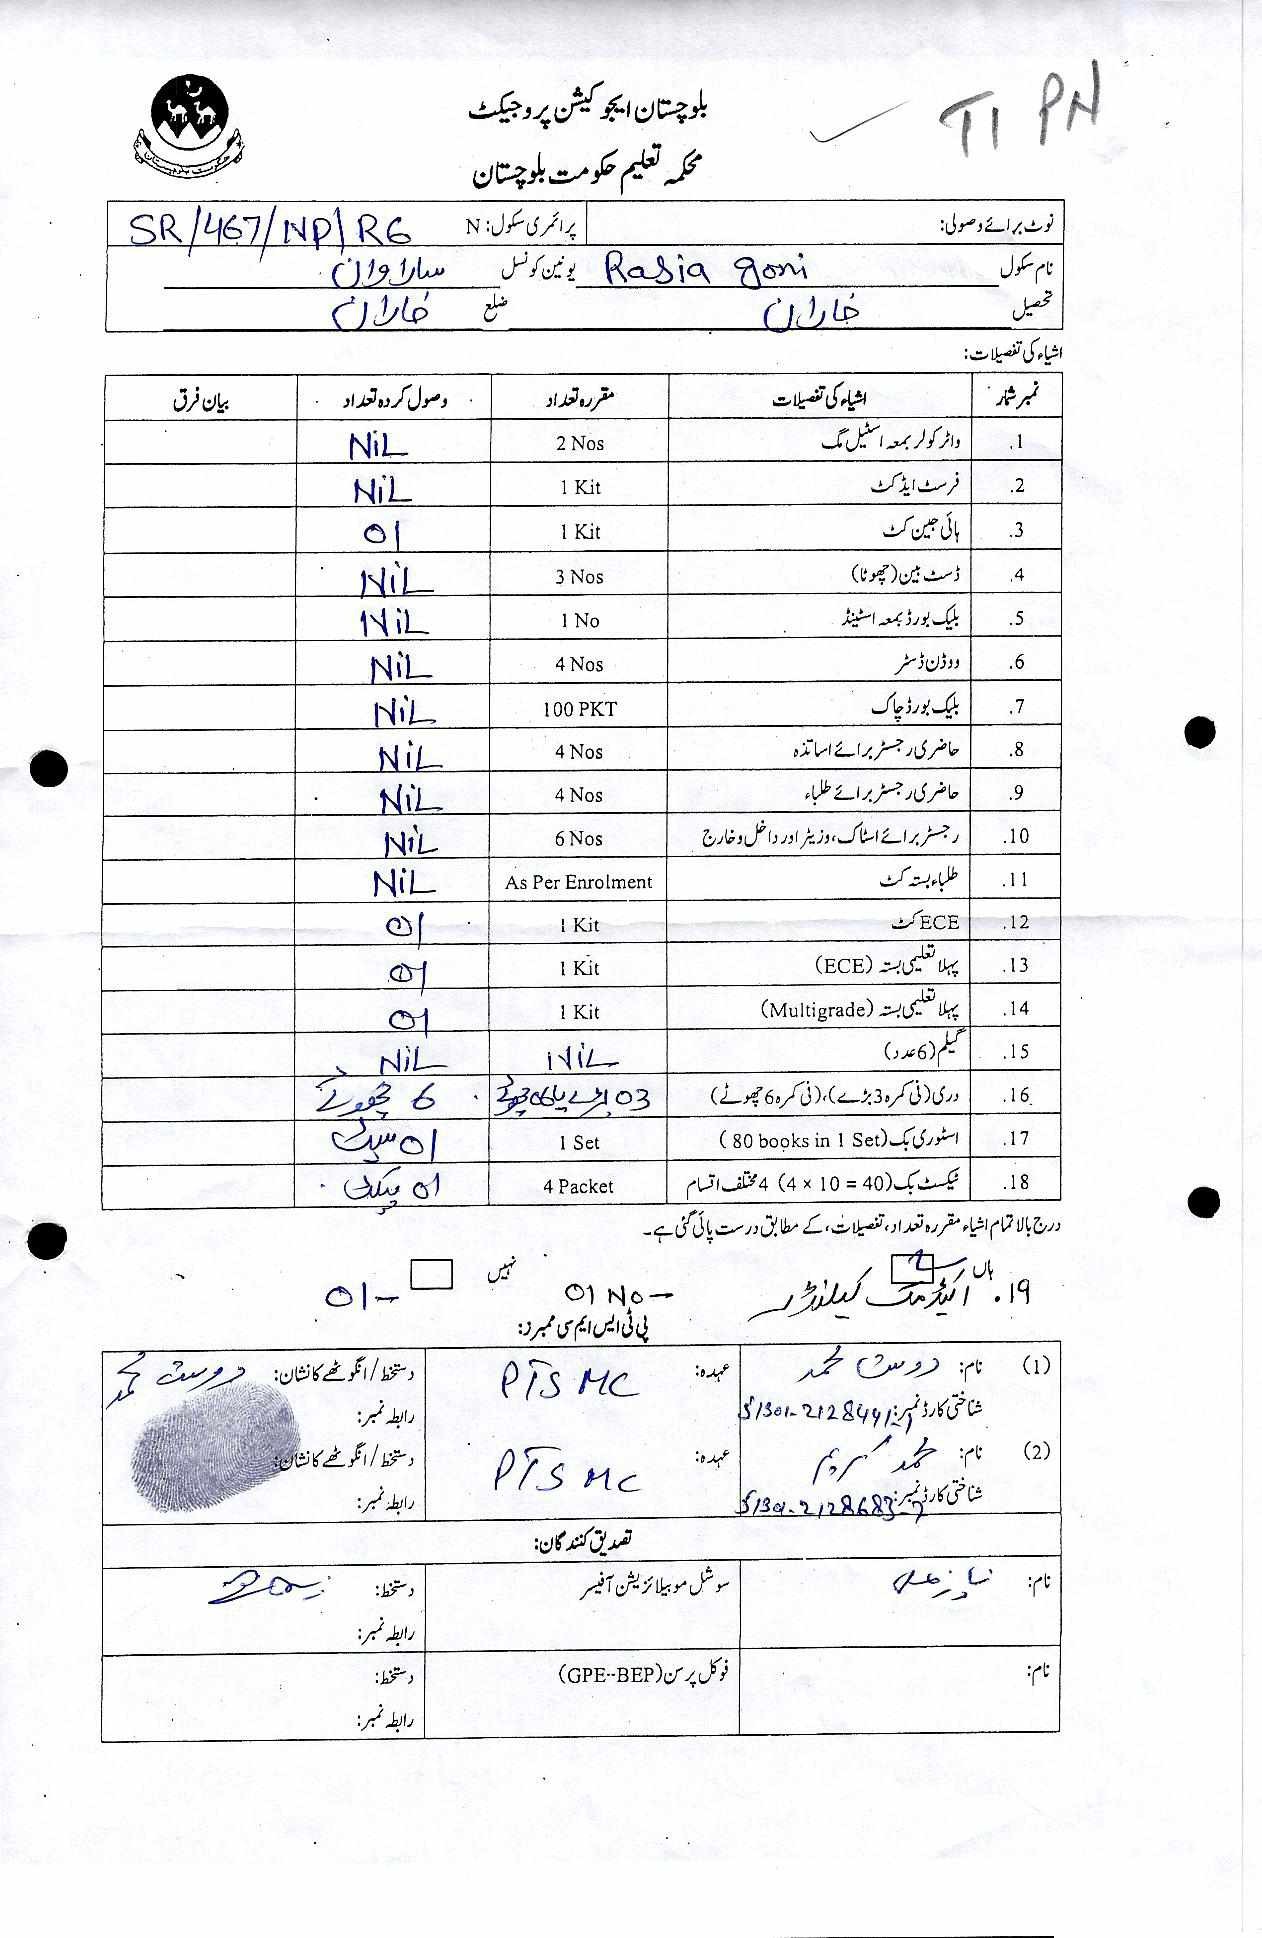 TI PN
بلوچستان ایجوکیشن پروجیکٹ
محکمہ تعلیم حکومت بلوچستان
نوٹ برائے وصولی: پرائمری سکول: N SR/467/NP/RG
نام سکول Rasia goni یونین کونسل ساراوان
تحصیل خاران ضلع خاران
اشیاء کی تفصیلات:
نمبر شمار اشیاء کی تفصیلات مقررہ تعداد وصول کردہ تعداد بیان فرق
.1 واٹر کولر بمعہ اسٹیل مگ 2 Nos NiL
.2 فرسٹ ایڈ کٹ 1 Kit NiL
.3 ہائی جین کٹ 1 Kit 01
.4 ڈسٹ بین (چھوٹا) 3 Nos NiL
.5 بلیک بورڈ بمعہ اسٹینڈ 1 No NiL
.6 ووڈن ڈسٹر 4 Nos NiL
.7 بلیک بورڈ چاک 100 PKT NiL
.8 حاضری رجسٹر برائے اساتذہ 4 Nos NiL
.9 حاضری رجسٹر برائے طلباء 4 Nos NiL
.10 رجسٹر برائے اسٹاک، وزیٹر اور داخل و خارج 6 Nos NiL
.11 طلباء بستہ کٹ As Per Enrolment NiL
.12 ECE کٹ 1 Kit 01
.13 پہلا تعلیمی بستہ (ECE) 1 Kit 01
.14 پہلا تعلیمی بستہ (Multigrade) 1 Kit 01
.15 گیلم (6 عدد) NiL NiL
.16 دری (فی کمرہ 3 بڑے)، (فی کمرہ 6 چھوٹے) 03 بڑے یا 06 چھوٹے 6 چھوٹے
.17 اسٹوری بک (80 books in 1 Set) 1 Set 01 سیٹ
.18 ٹیکسٹ بک (4 × 10 = 40) 4 مختلف اقسام 4 Packet 01 پیکٹ
درج بالا تمام اشیاء مقررہ تعداد، تفصیلات، کے مطابق درست پائی گئی ہے۔
ہاں نہیں
۱۹. اکیڈمک کیلنڈر 01 No - 01-
پی ٹی ایس ایم سی ممبرز:
(1) نام: دوست محمد عہدہ: PTSMC دستخط/انگوٹھے کا نشان: دوست محمد
شناختی کارڈ نمبر: رابطہ نمبر:
(2) نام: محمد کریم عہدہ: PTSMC دستخط/انگوٹھے کا نشان:
شناختی کارڈ نمبر: 51301-2128683-7 رابطہ نمبر:
تصدیق کنندگان:
نام: سوشل موبیلائزیشن آفیسر دستخط:
رابطہ نمبر:
نام: فوکل پرسن (GPE-BEP) دستخط:
رابطہ نمبر: